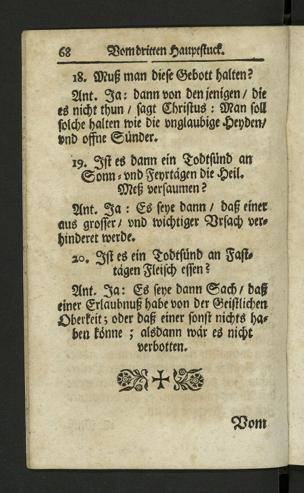 68 Vom dritten Hauptstuck.
18. Muß man diese Gebott halten?
Ant. Ja: dann von den jenigen / die
es nicht thun / sagt Christus: Man soll
solche halten wie die vnglaubige Heyden/
vnd offne Sünder.
19. Ist es dann ein Todtsünd an
Sonn- vnd Feyrtägen die Heil.
Meß versaumen?
Ant. Ja: Es seye dann / daß einer
aus grosser / vnd wichtiger Vrsach ver-
hinderet werde.
20. Ist es ein Todtsünd an Fast-
tägen Fleisch essen?
Ant. Ja: Es seye dann Sach / daß
einer Erlaubnuß habe von der Geistlichen
Oberkeit; oder daß einer sonst nichts ha-
ben könne; alsdann wär es nicht
verbotten.
Vom